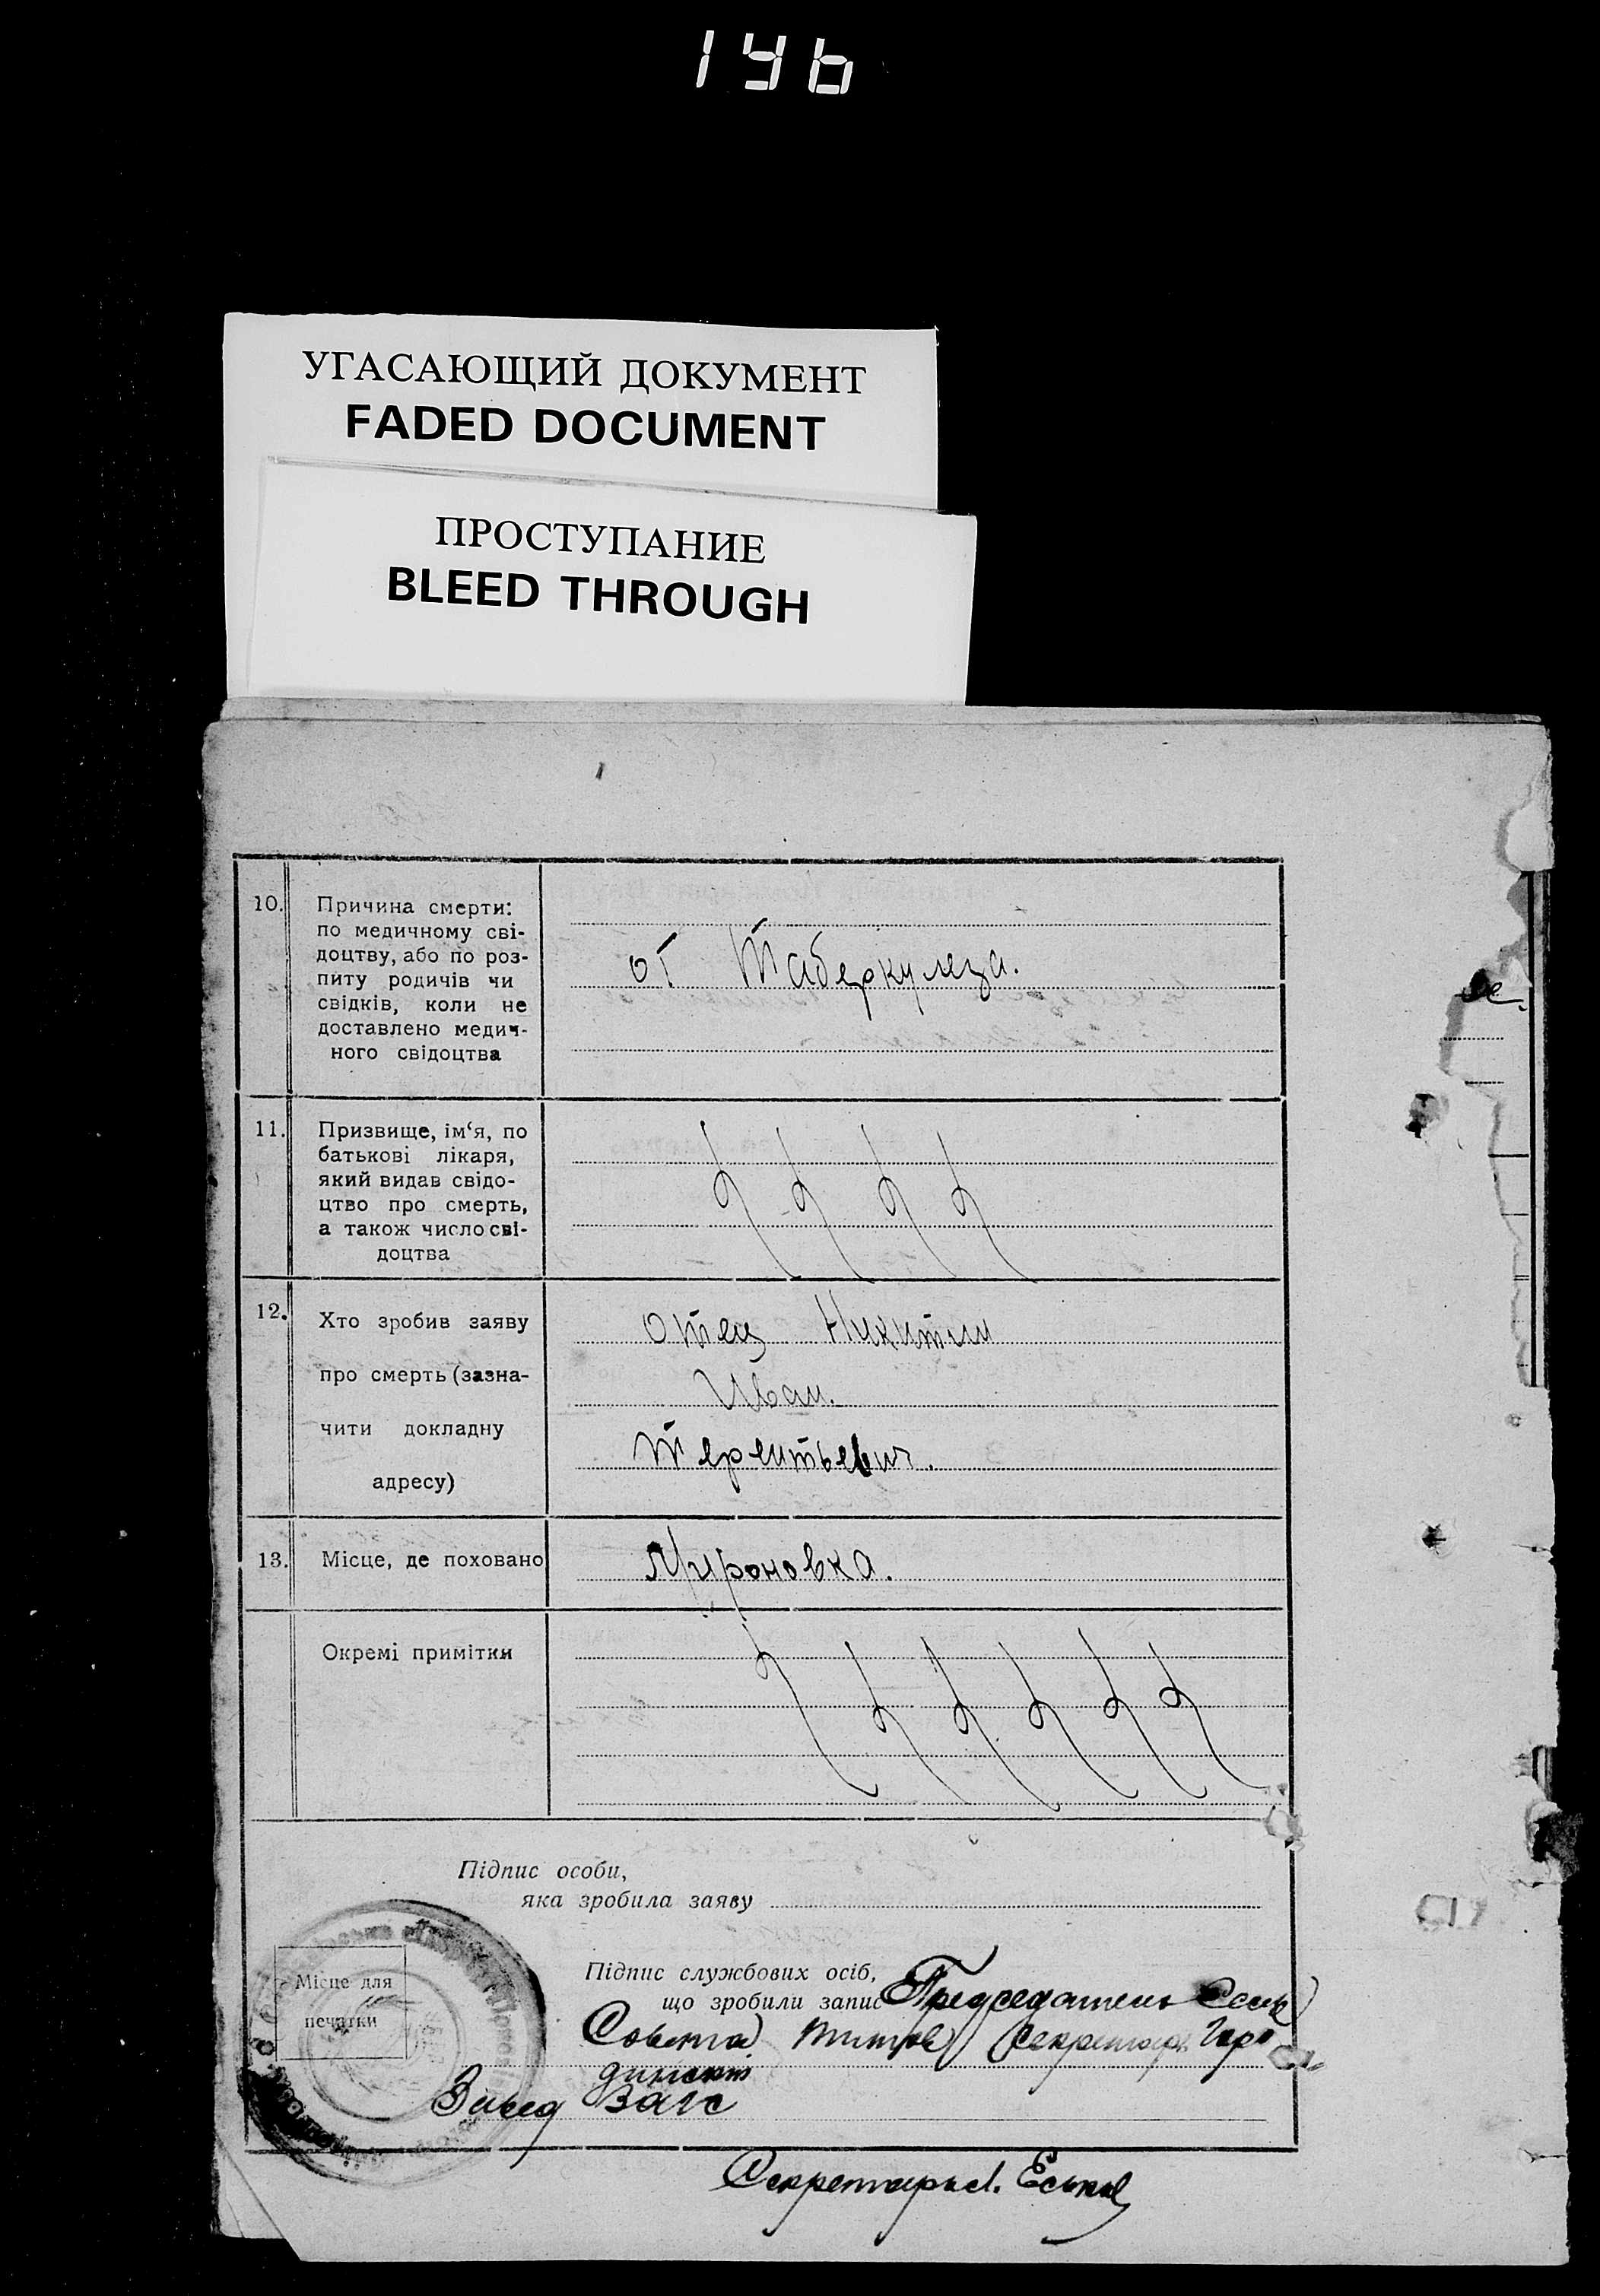 146
УГАСАЮЩИЙ ДОКУМЕНТ
FADED DOCUMENT
ПРОСТУПАНИЕ
BLEED THROUGH
10. Причина смерти:
по медичному сві-
доцтву, або по роз-
питу родичів чи
свідків, коли не
доставлено медич-
ного свідоцтва
от Таберкулеза.
11. Призвище, ім‘я, по
батькові лікаря,
який видав свідо-
цтво про смерть,
а також число сві-
доцтва
12. Хто зробив заяву
про смерть (зазна-
чити докладну
адресу)
отец Никитин
Иван.
Терентьевич.
13. Місце, де поховано
Мироновка.
Окремі примітки
Підпис особи,
яка зробила заяву
Місце для
печатки
Підпис службових осіб,
що зробили запис Председатель Сель
Совета Титов Секретарь
Завед Загс
Секретарь